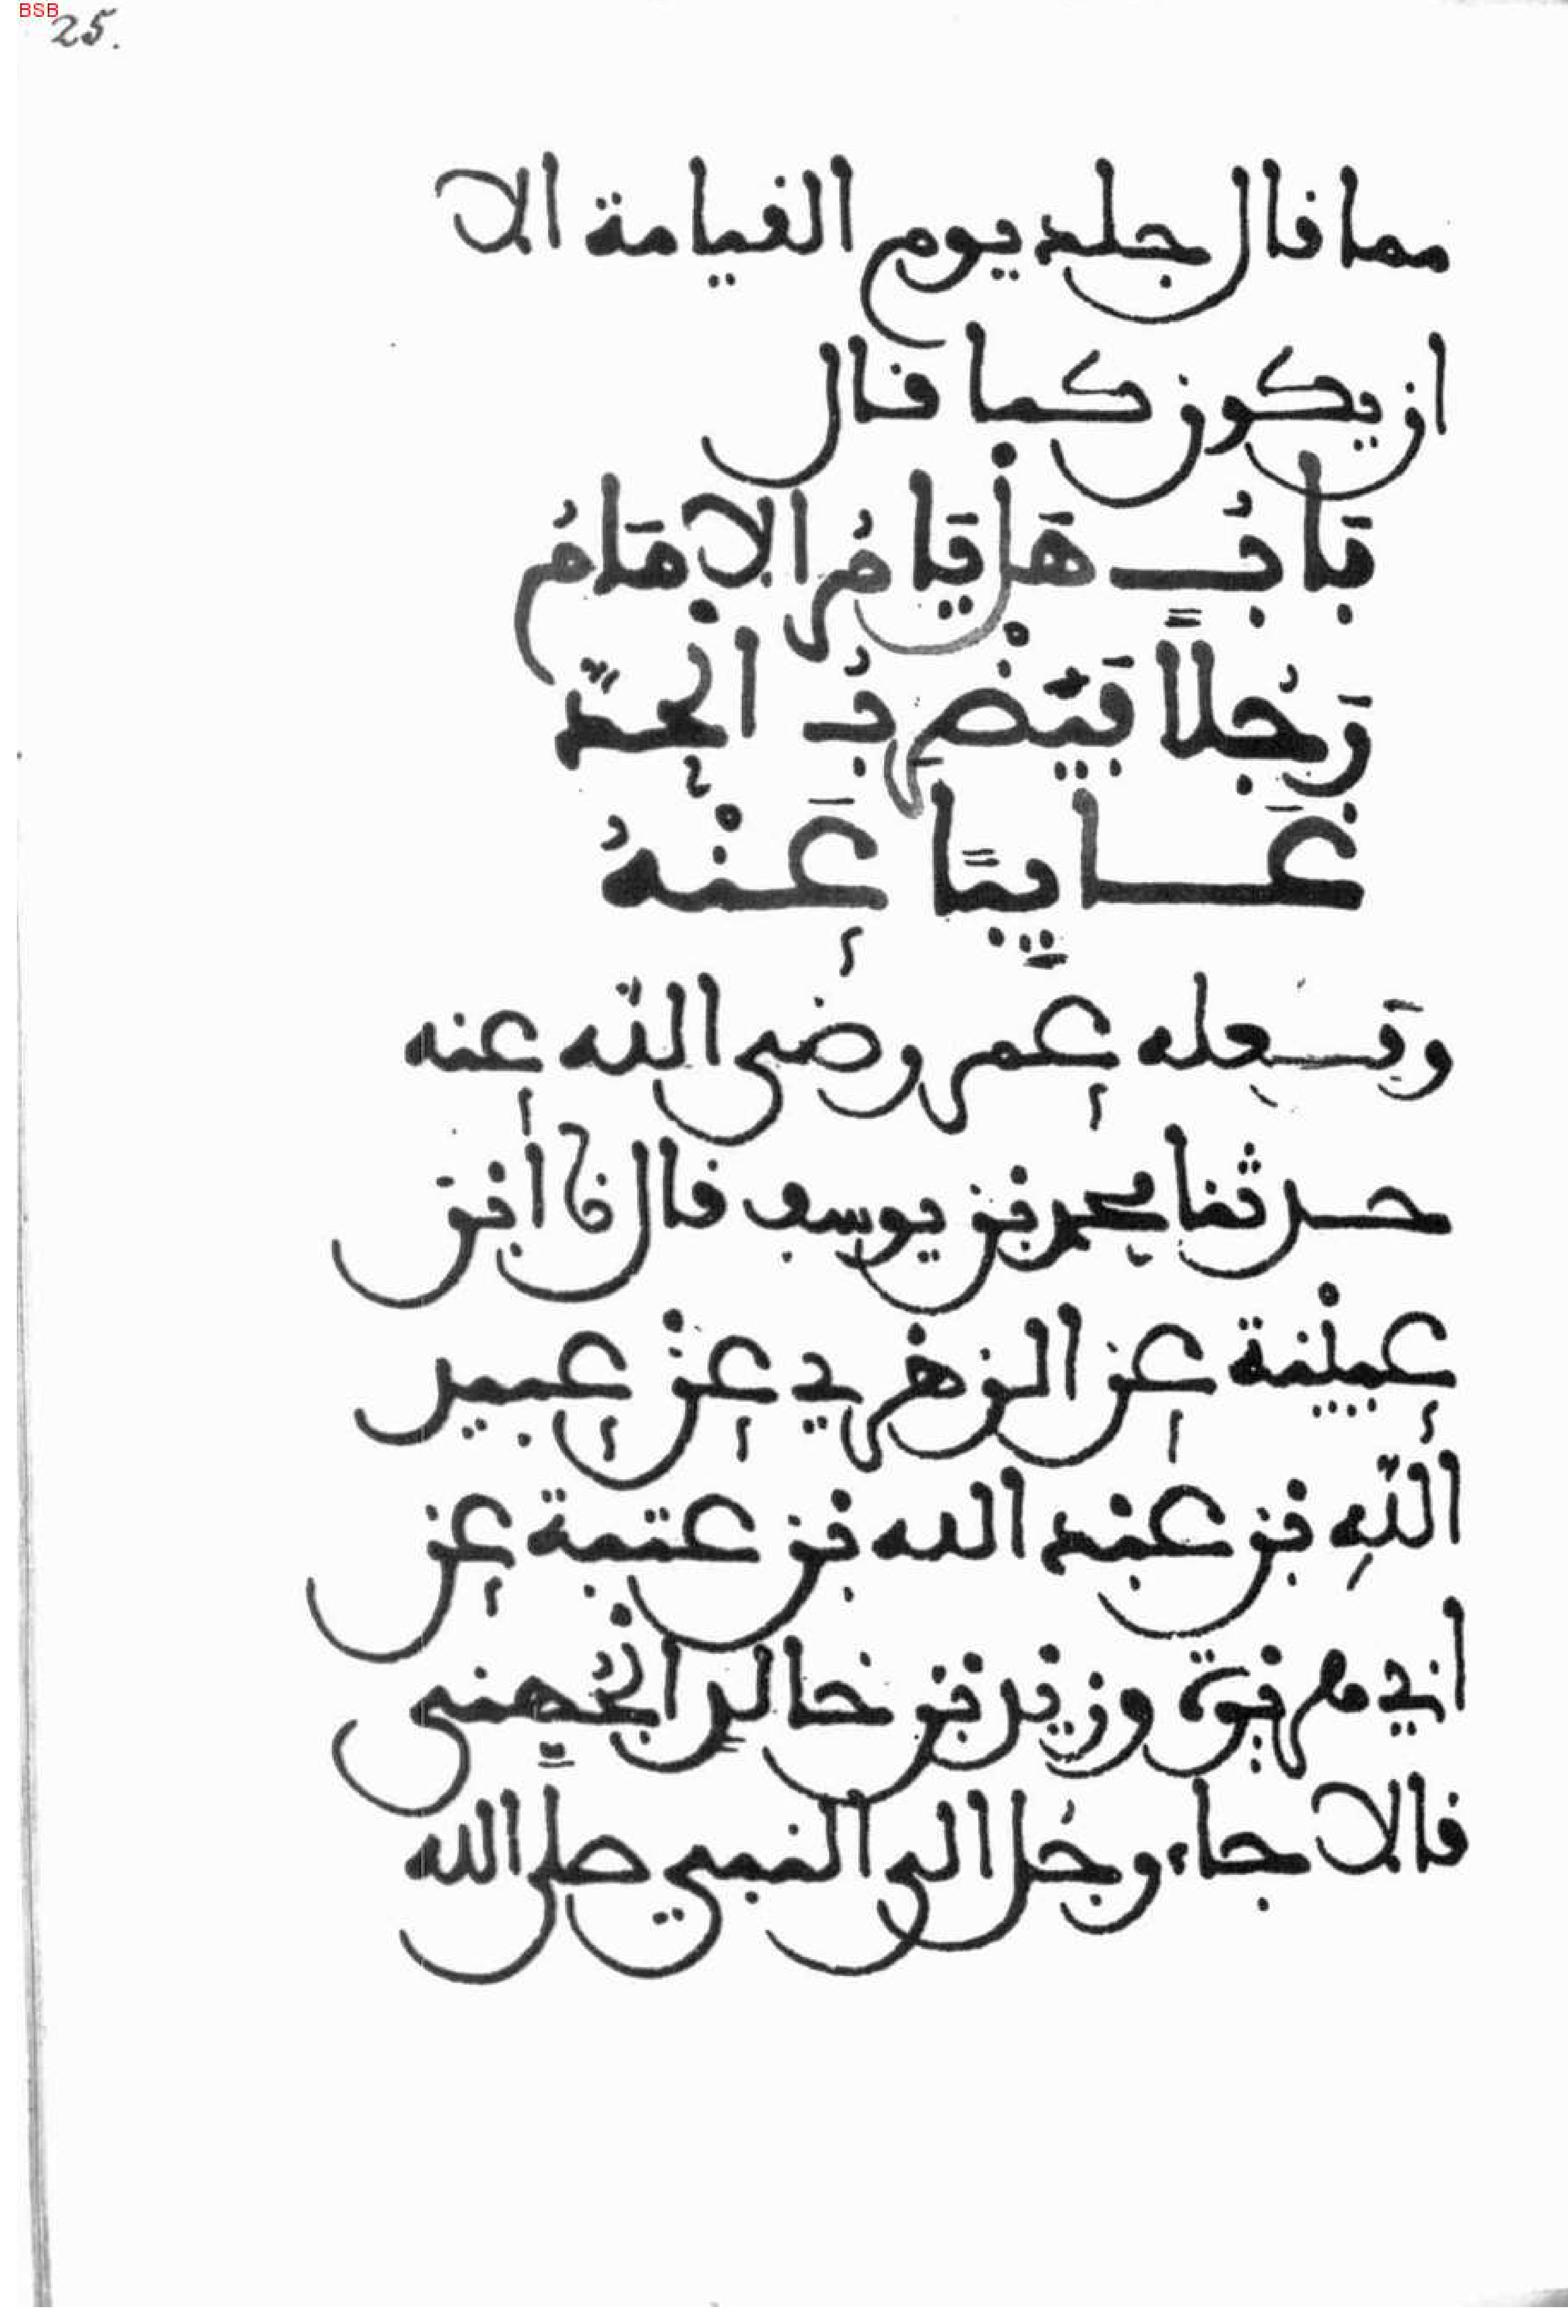 BSB
25.
مما قال جلد يوم القيامة الا
ان يكون كما قال
بَابُ هَلْ يَامُرُ الامَامُ
رَجُلًا فَيَضْرِبُ الحَدَّ
غَايِبًا عَنْهُ
وفَعله عمر رضى اللّه عنه
حدثنا محمد بن يوسف قال نا ابن
عيينة عن الزهري عن عبيد
اللّهِ بن عبد الله بن عتبة عن
ابي هريرة وزيد بن خالد الجُهني
قالا جاء رجُل الى النبي صلى الله